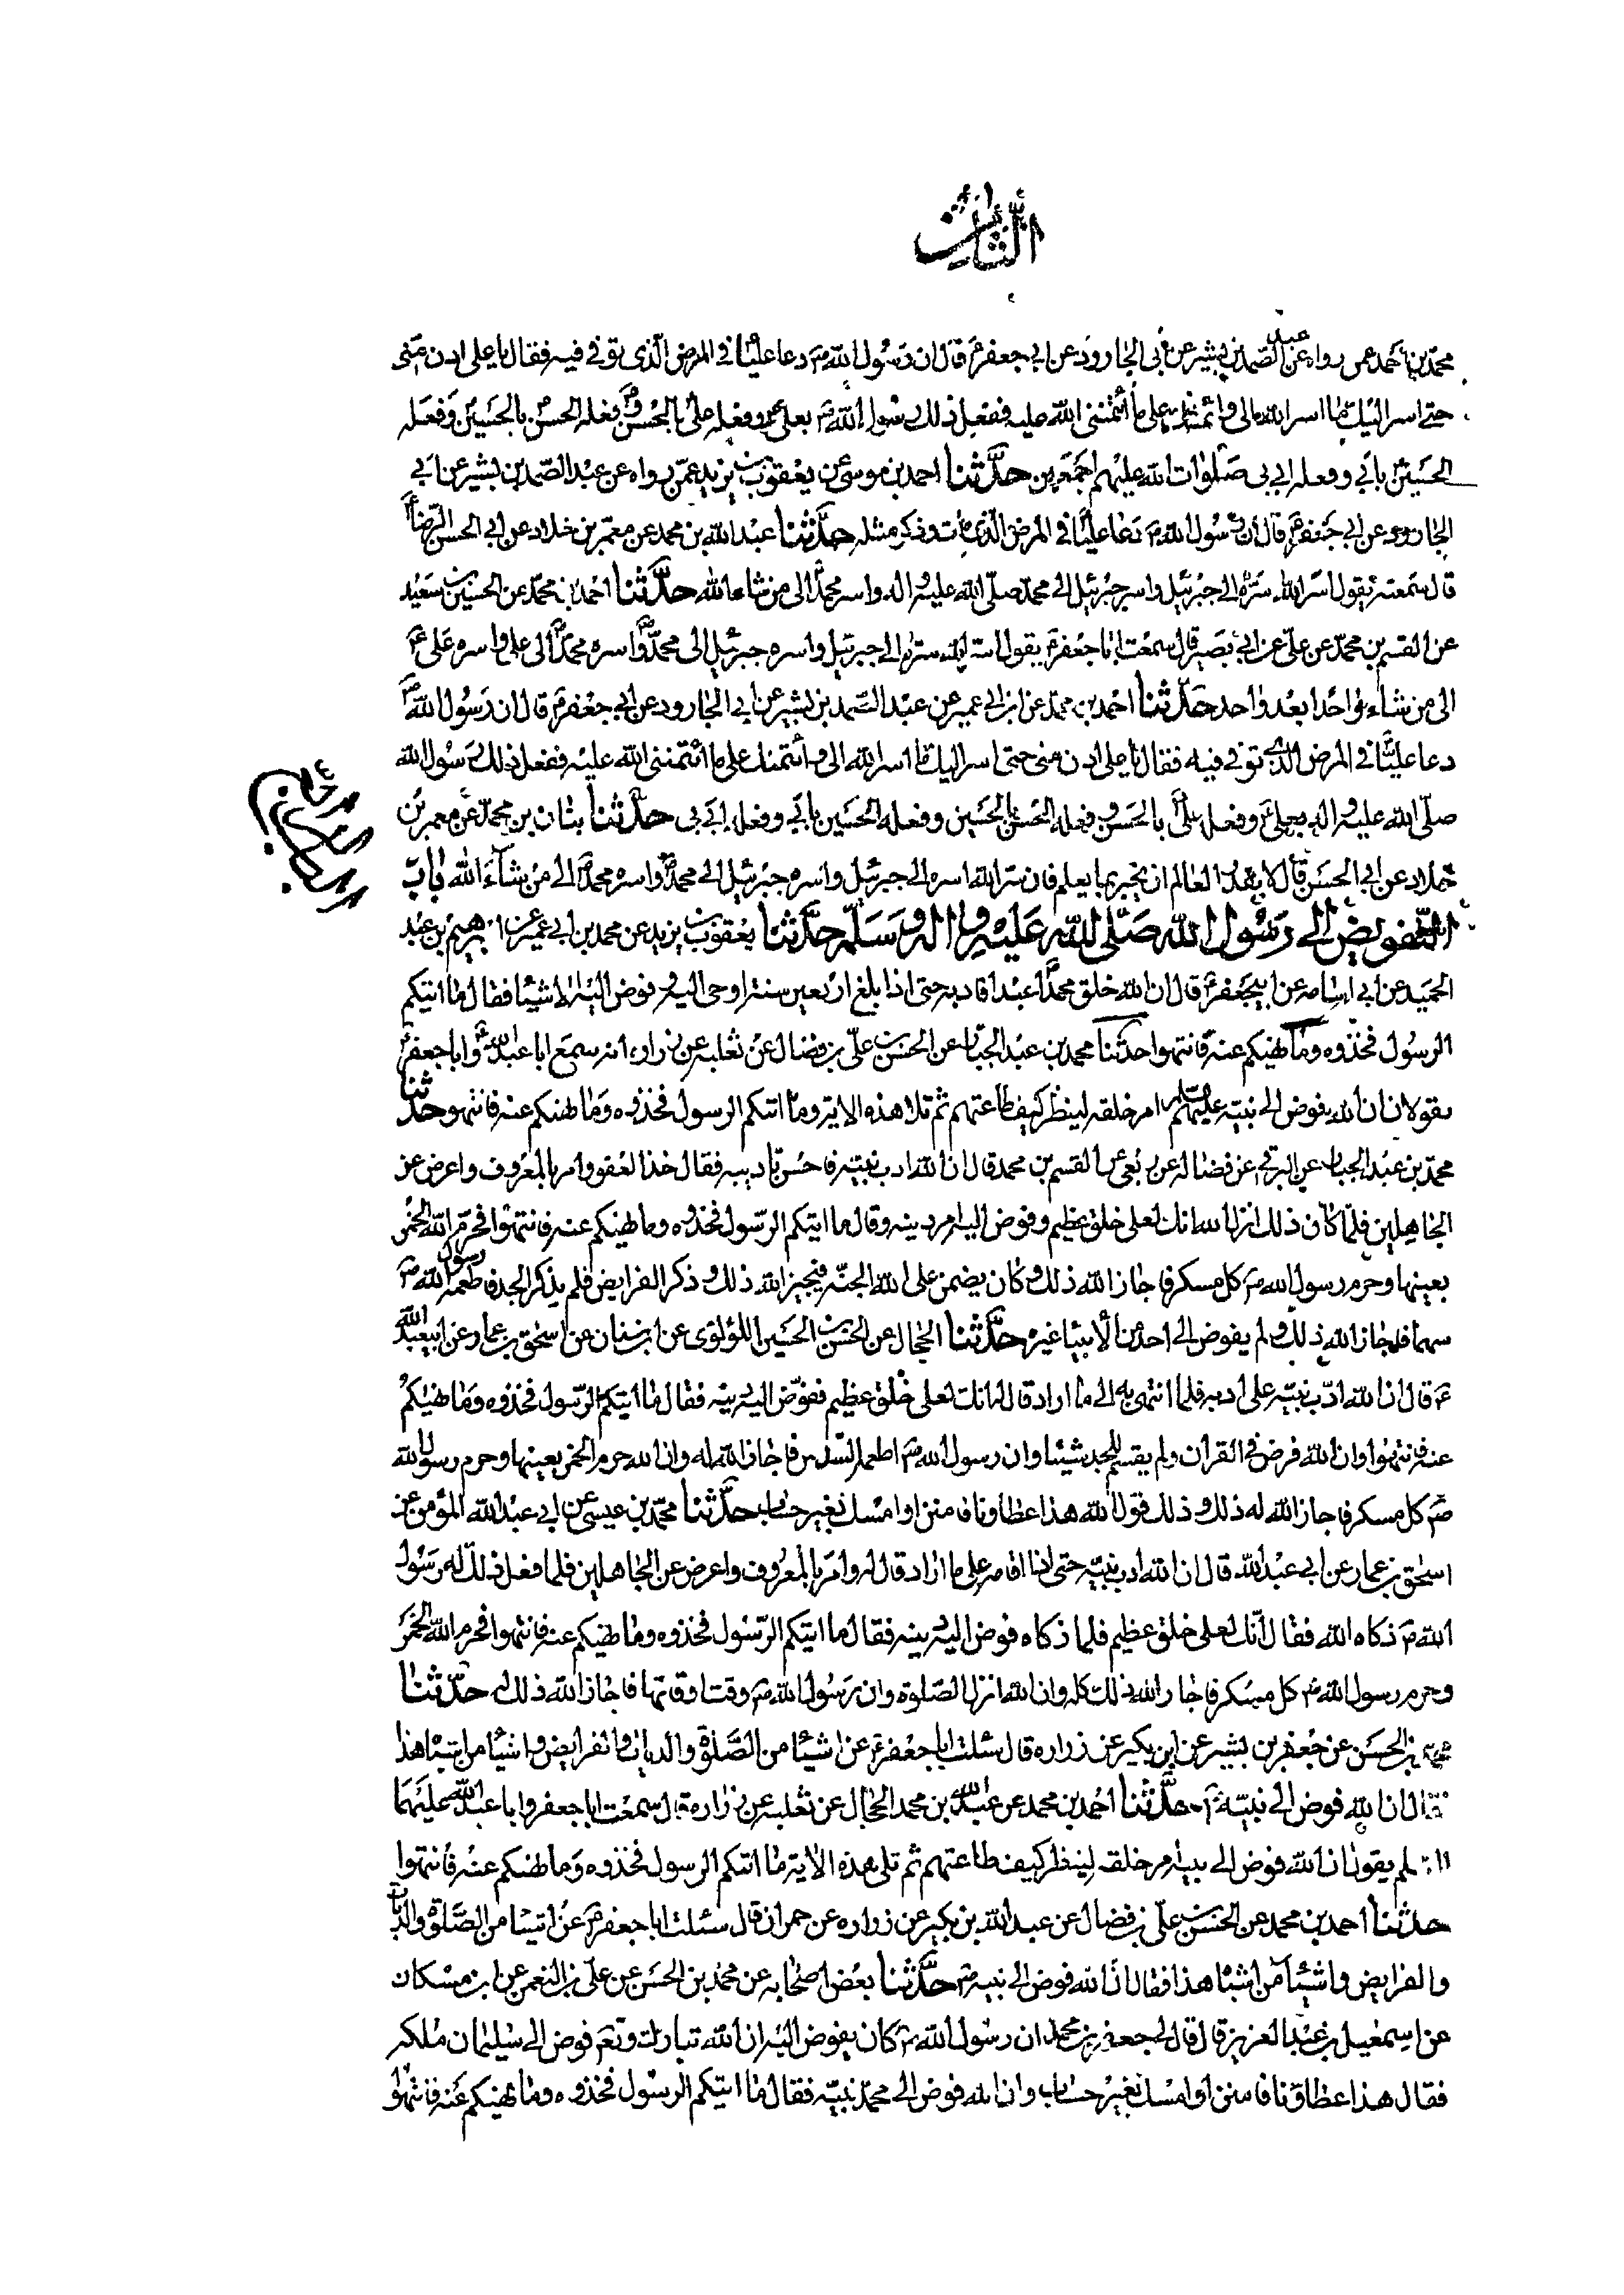 الثامن
محمد بن احمد عمن رواه عن عبد الصمد بن بشير عن ابى الجارود عن ابى جعفر ع قال ان رسول الله ص دعا عليا فى المرض الذى توفى فيه فقال يا على ادن منى
حتى اسر اليك ما اسر الله الى وائتمنك على ما ائتمننى الله عليه ففعل ذلك رسول الله ص بعلى ع وفعله على بالحسن وفعله الحسن بالحسين وفعله
الحسين بابى وفعله ابى بى صلوات الله عليهم اجمعين حدثنا احمد بن موسى عن يعقوب بن يزيد عمن رواه عن عبد الصمد بن بشير عن ابى
الجارود عن ابى جعفر ع قال ان رسول الله ص دعا عليا فى المرض الذى مات وذكر مثله حدثنا عبد الله بن محمد عن معمر بن خلاد عن ابى الحسن الرضا ع
قال سمعته يقول اسر الله سره الى جبرئيل واسر جبرئيل الى محمد صلى الله عليه واله واسر محمد الى من شاء الله حدثنا احمد بن محمد عن الحسين بن سعيد
عن القسم بن محمد عن على عن ابى بصير قال سمعت ابا جعفر ع يقول اسر الله سره الى جبرئيل واسره جبرئيل الى محمد ص واسره محمد الى على واسره على ع
الى من شاء واحدا بعد واحد حدثنا احمد بن محمد عن ابن ابى عمير عن عبد الصمد بن بشير عن ابى الجارود عن ابى جعفر ع قال ان رسول الله ص
دعا عليا فى المرض الذى توفى فيه فقال يا على ادن منى حتى اسر اليك ما اسر الله الى وائتمنك على ما ائتمننى الله عليه ففعل ذلك رسول الله
صلى الله عليه واله بعلى ع وفعله على بالحسن وفعله الحسن بالحسين وفعله الحسين بابى وفعله ابى بى حدثنا بنان بن محمد عن معمر بن
خلاد عن ابى الحسن قال لا يقدر العالم ان يخبر بما يعلم فان سر الله اسره الى جبرئيل واسره جبرئيل الى محمد ص واسره محمد الى من شاء الله باب
التفويض الى رسول الله صلى الله عليه واله وسلم حدثنا يعقوب بن يزيد عن محمد بن ابى عمير عن ابرهيم بن عبد
الحميد عن ابى اسامه عن ابيجعفر ع قال ان الله خلق محمدا عبدا فادبه حتى اذا بلغ اربعين سنة اوحى اليه وفوض اليه الاشيا فقال ما اتيكم
الرسول فخذوه وما نهيكم عنه فانتهوا حدثنا محمد بن عبد الجبار عن الحسن بن على بن فضال عن ثعلبه عن زراره انه سمع ابا عبد الله ع وابا جعفر
يقولان ان الله فوض الى نبيه عليه السلام امر خلقه لينظر كيف طاعتهم ثم تلا هذه الاية وما اتيكم الرسول فخذوه وما نهيكم عنه فانتهو حدثنا
محمد بن عبد الجبار عن البرقى عن فضاله عن ربعى عن القسم بن محمد قال ان الله ادب نبيه فاحسن تاديبه فقال خذ العفو وامر بالمعروف واعرض عن
الجاهلين فلما كان ذلك انزل الله انك لعلى خلق عظيم وفوض اليه امر دينه وقال ما اتيكم الرسول فخذوه وما نهيكم عنه فانتهوا فحرم الله الخمر
بعينها وحرم رسول الله ص كل مسكر فاجاز الله ذلك وكان يضمن على الله الجنة فيجيز الله ذلك وذكر الفرايض فلم يذكر الجد فاطعمه رسول الله ص
سهما فاجاز الله ذلك ولم يفوض الى احد من الانبياء غيره حدثنا الحجال عن الحسن بن الحسين اللؤلؤى عن ابن سنان عن اسحق بن عمار عن ابيعبد الله
ع قال ان الله ادب نبيه على ادبه فلما انتهى به الى ما اراد قال له انك لعلى خلق عظيم ففوض اليه دينه فقال ما اتيكم الرسول فخذوه وما نهيكم
عنه فانتهوا وان الله فرض فى القران ولم يقسم للجد شيئا وان رسول الله ص اطعمه السدس فاجاز الله له وان الله حرم الخمر بعينها وحرم رسول الله
ص كل مسكر فاجاز الله له ذلك وذلك قول الله هذا عطاونا فامنن او امسك بغير حساب حدثنا محمد بن عيسى عن ابى عبد الله المؤمن عن
اسحق بن عمار عن ابى عبد الله قال ان الله ادب نبيه حتى اذا اقامه على ما اراد قال له وامر بالمعروف واعرض عن الجاهلين فلما فعل ذلك له رسول
الله ص ذكاه الله فقال انك لعلى خلق عظيم فلما ذكاه فوض اليه دينه فقال ما اتيكم الرسول فخذوه وما نهيكم عنه فانتهوا فحرم الله الخمر
وحرم رسول الله ص كل مسكر فاجاز الله ذلك كله وان الله انزل الصلوة وان رسول الله ص وقت اوقاتها فاجاز الله ذلك له حدثنا
محمد بن الحسن عن جعفر بن بشير عن ابن بكير عن زراره قال سئلت ابا جعفر ع عن اشيئا من الصلوة والديات والفرايض واشيئا من اشباه هذا
فقال ان الله فوض الى نبيه ص حدثنا احمد بن محمد عن عبد الله بن محمد الحجال عن ثعلبه عن زراره قال سمعت ابا جعفر وابا عبد الله عليهما
السلم يقولا ان الله فوض الى نبيه امر خلقه لينظر كيف طاعتهم ثم تلى هذه الاية ما اتيكم الرسول فخذوه وما نهيكم عنه فانتهوا
حدثنا احمد بن محمد عن الحسن بن على بن فضال عن عبد الله بن بكير عن زراره عن حمران قال سئلت ابا جعفر ع عن اشيئا من الصلوة والديات
والفرايض واشيئا من اشباه هذا فقال ان الله فوض الى نبيه ص حدثنا بعض اصحابه عن محمد بن الحسن عن على بن النعمن عن ابن مسكان
عن اسمعيل بن عبد العزيز قال قال لى جعفر بن محمد ان رسول الله ص كان يفوض اليه ان الله تبارك وتع فوض الى سليمان ملكه
فقال هذا عطاؤنا فامنن او امسك بغير حساب وان الله فوض الى محمد نبيه فقال ما اتيكم الرسول فخذوه وما نهيكم عنه فانتهوا